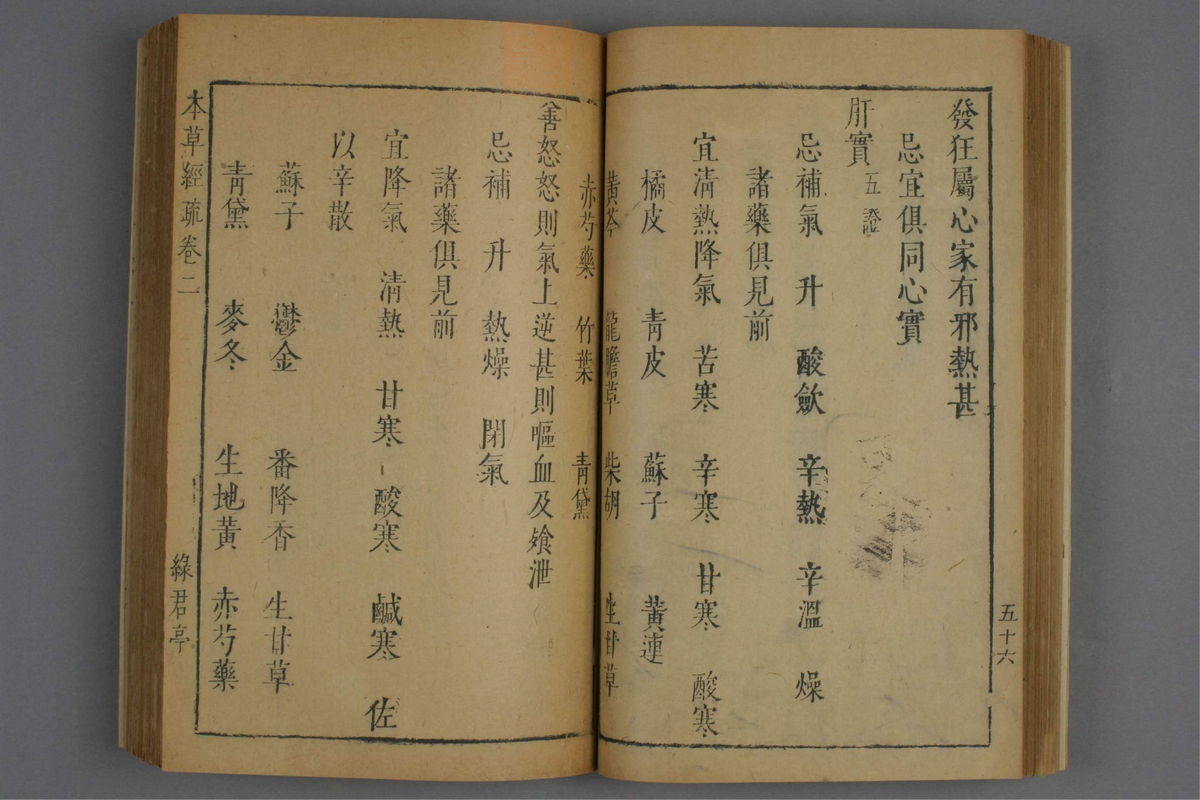 發狂屬心家有邪熱甚
忌宜俱同心實
肝實五證
忌補氣 升 酸斂 辛熱 辛溫 燥
諸藥俱見前
宜清熱降氣 苦寒 辛寒 甘寒 酸寒
橘皮 青皮 蘇子 黃連
黃芩 龍膽草 柴胡 生甘草
五十六
赤芍藥 竹葉 青黛
善怒怒則氣上逆甚則嘔血及飧泄
忌補 升 熱燥 閉氣
諸藥俱見前
宜降氣 清熱 甘寒 酸寒 鹹寒 佐
以辛散
蘇子 鬱金 番降香 生甘草
青黛 麥冬 生地黃 赤芍藥
本草經疏卷二 綠君亭